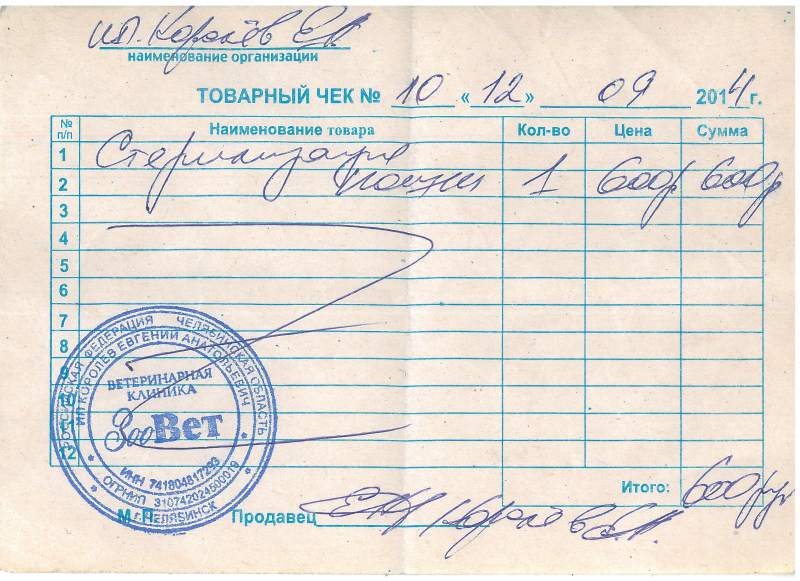 ИП. Королёв Е.А.
наименование организации
ТОВАРНЫЙ ЧЕК № 10 «12» 09 2014г.
№ п/п Наименование товара Кол-во Цена Сумма
1 Стерилизация
2 кошки 1 600р 600р
3
4
5
6
7
8
9
10
11
12
РОССИЙСКАЯ ФЕДЕРАЦИЯ ЧЕЛЯБИНСКАЯ ОБЛАСТЬ
ИП КОРОЛЕВ ЕВГЕНИЙ АНАТОЛЬЕВИЧ
ВЕТЕРИНАРНАЯ
КЛИНИКА
ЗооВет
ИНН 741804817293
ОГРНИП 310742024500019
г. ЧЕЛЯБИНСК
Итого: 600 руб
М.П. Продавец Королёв Е.А.